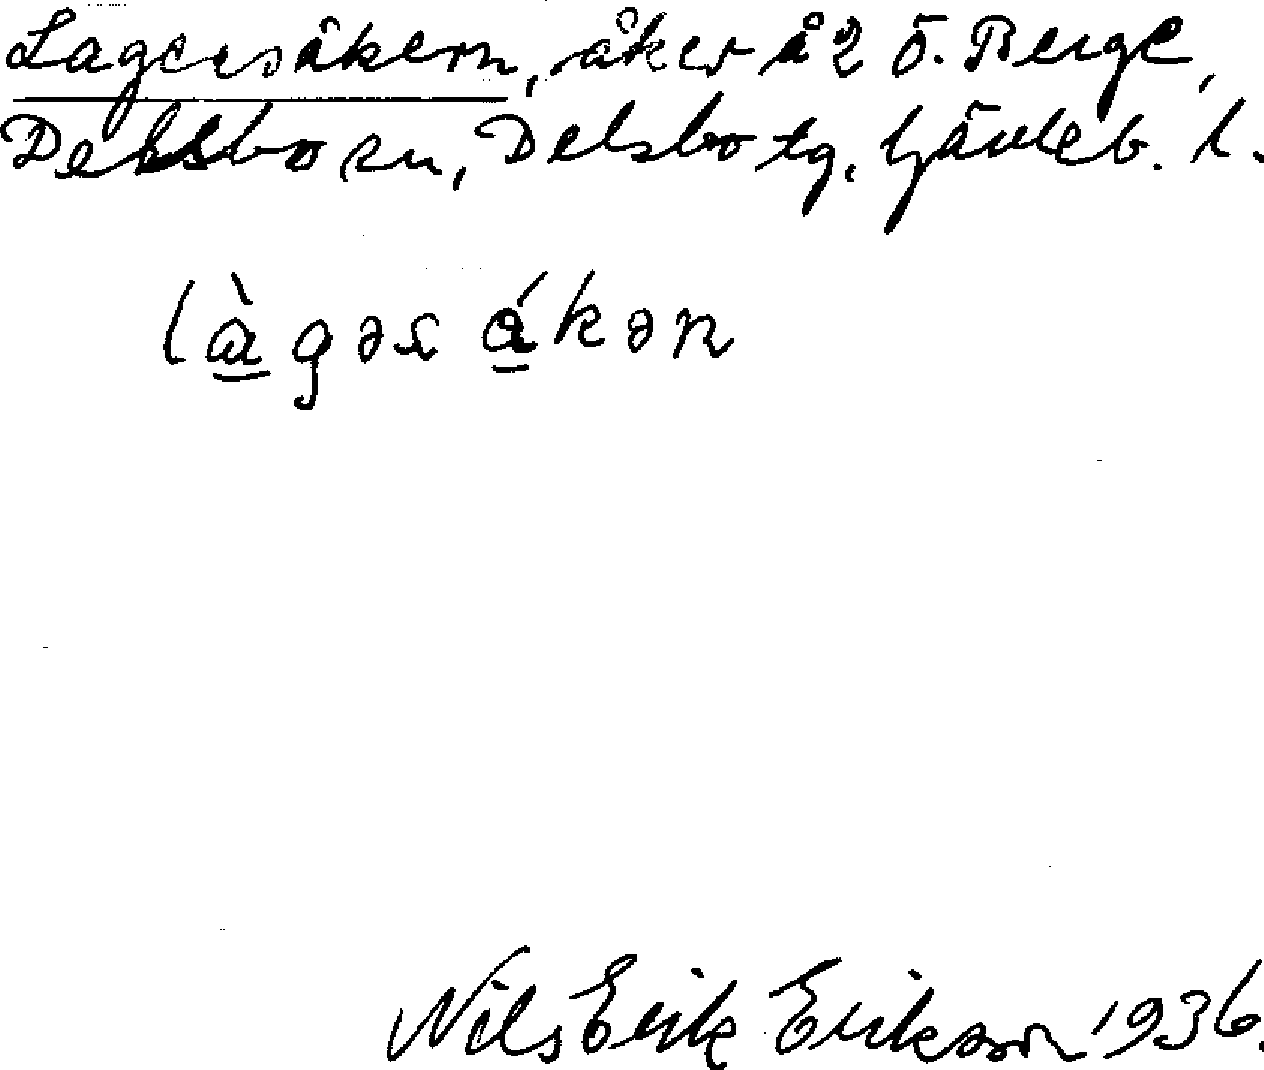 Lagersåkern, åker å 2 Ö. Berge,
Delsbo sn, Delsbo tg, Gävleb. l.
làgəs ákən
Nils Erik Erikson 1936.